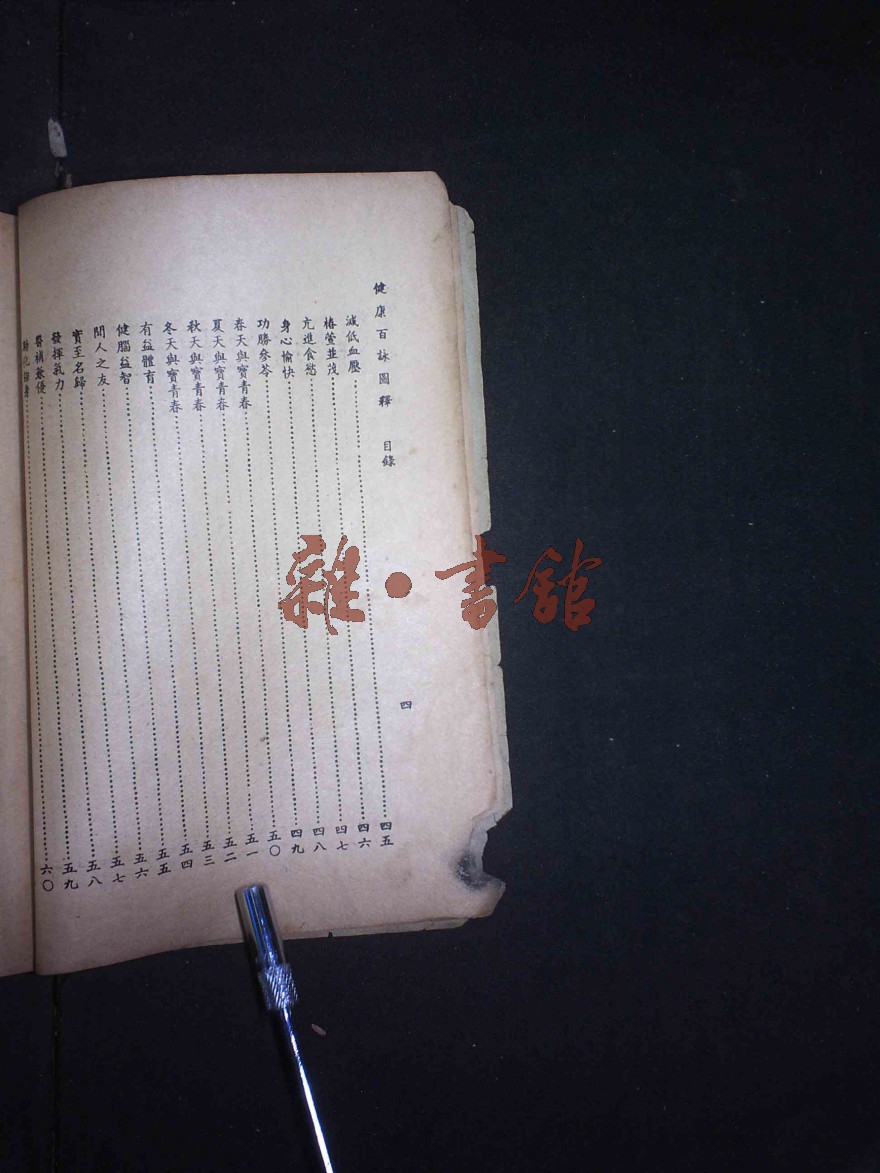 健康百詠圖釋 目錄 四
減低血壓……四五
椿萱並茂……四六
亢進食慾……四七
身心愉快……四八
功勝參苓……四九
春天與寶青春……五〇
夏天與寶青春……五一
秋天與寶青春……五二
冬天與寶青春……五三
有益體育……五四
健腦益智……五五
人之友……五六
實至名歸……五七
發揮氣力……五八
醫補兼優……五九
……六〇
雜·書館